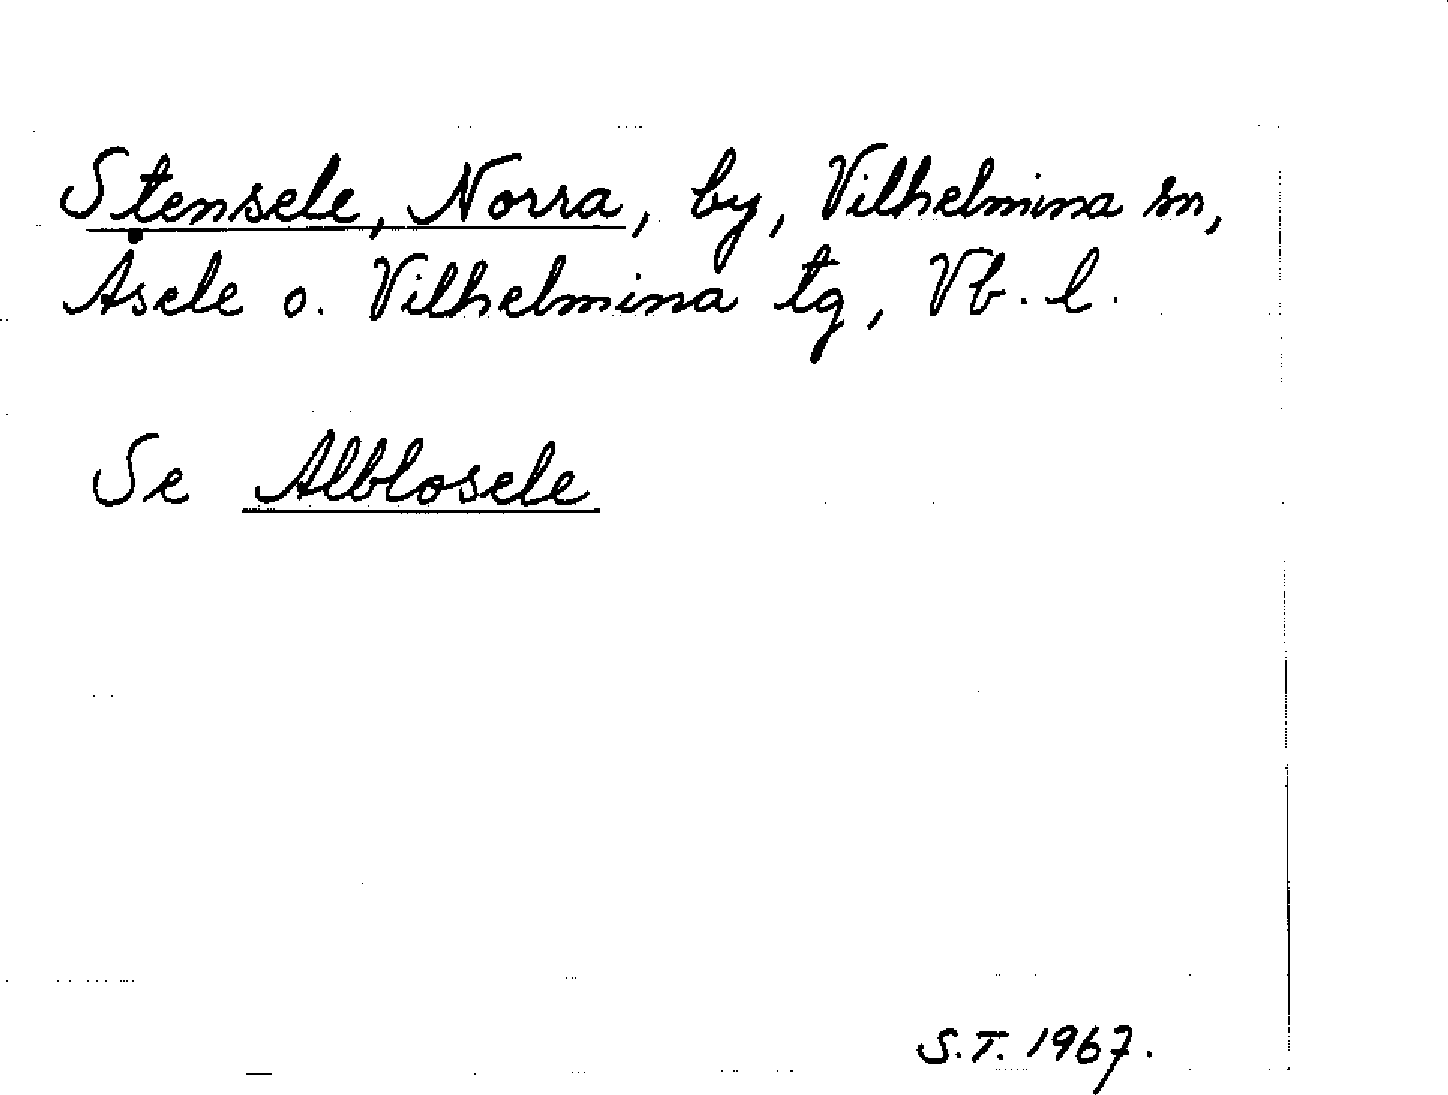 Stensele, Norra, by, Vilhelmina sn,
Åsele o. Vilhelmina tg, Vb. l.
Se Alblosele
S.T. 1967.